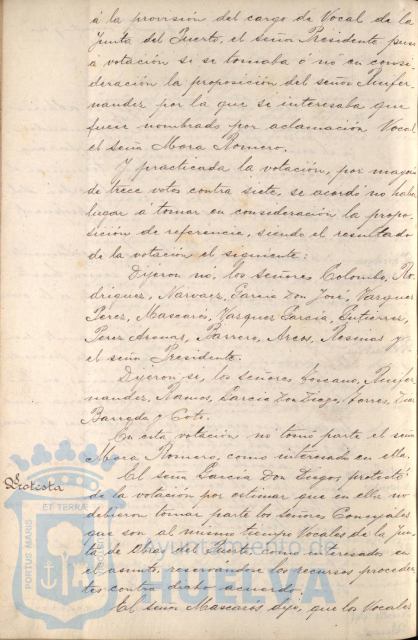 á la provisión del cargo de Vocal de la
Junta del Puerto, el señor Presidente puso
á votación si se tomaba ó no en consi-
deración la proposición del señor Ruifer-
nandez por la que se interesaba que
fuese nombrado por aclamación Vocal
el señor Mora Romero.
Y practicada la votación, por mayoría
de trece votos contra siete, se acordó no haber
lugar á tomar en consideración la propo-
sición de referencia, siendo el resultado
de la votación el siguiente:
Dijeron nó, los señores Colombo, Ro-
driguez, Narvaez, Garcia Don José, Vazquez
Perez, Mascarós, Vazquez Garcia, Gutierrez,
Perez, Barrero, Arcos, y
el señor Presidente.
Dijeron si, los señores Toscano, Ruifer-
nandez, Ramos, Garcia Don Diego, Torres,
Barreda y Coto.
En esta votación no tomó parte el señor
Mora Romero, como interesado en ella.
Protesta
El señor Garcia Don Diego protestó
de la votación por estimar que en ella no
debieron tomar parte los señores Concejales
que son al mismo tiempo Vocales de la Jun-
ta de Obras del Puerto como interesados en
el asunto, reservándose los recursos proceden-
tes contra dicho acuerdo.
El señor Mascarós dijo, que los Vocales
PORTUS MARIS
ET TERRAE
Ayuntamiento de
HUELVA